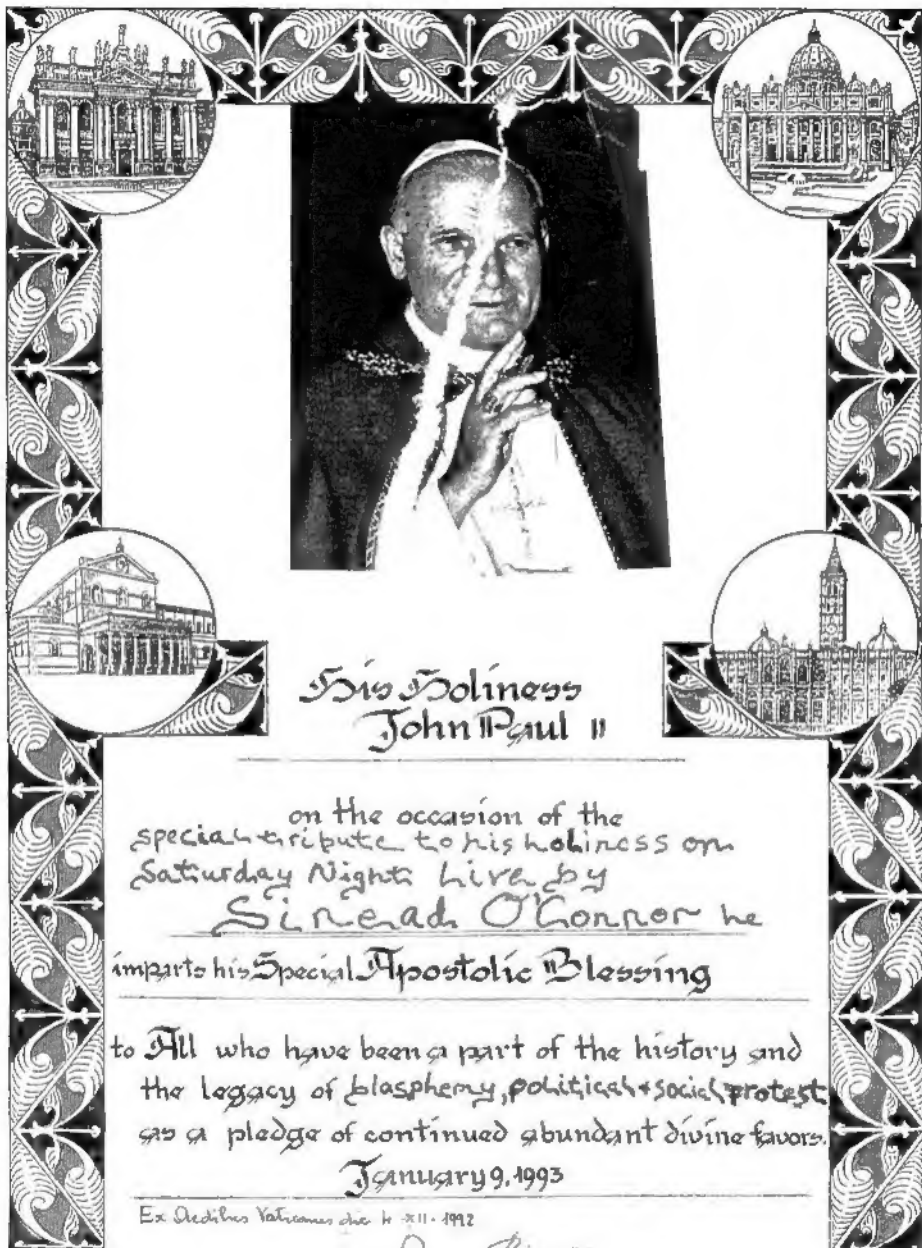 His Holiness
John Paul II
on the occasion of the
special tribute to his holiness on
Saturday Night Live by
Sinead O'Connor he
imparts his Special Apostolic Blessing
to All who have been a part of the history and
the legacy of blasphemy, political + social protest
as a pledge of continued abundant divine favors.
January 9, 1993
Ex Aedibus Vaticanis die 4-XII-1992